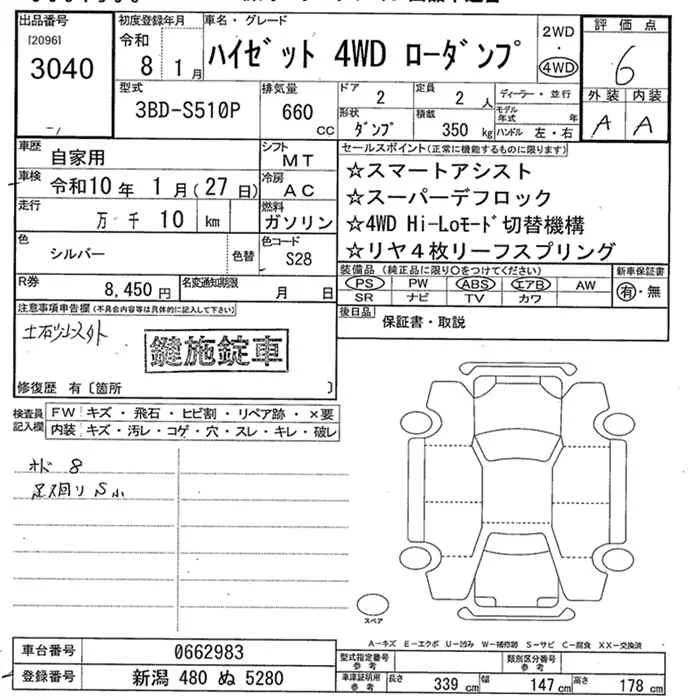 出品番号
[2096]
3040
初度登録年月
令和
8 1月
車名・グレード
ハイゼット 4WD ローダンプ
2WD
・
4WD
評価点
6
外装 内装
A A
型式
3BD-S510P
排気量
660
cc
ドア
2
定員
2 人
形状
ダンプ
積載
350 kg
ディーラー・並行
モデル
年式 年
ハンドル 左・右
車歴
自家用
シフト
MT
車検
令和10年 1月(27日)
冷房
AC
走行
万 千 10 km
燃料
ガソリン
色
シルバー
色替
色コード
S28
R券
8,450円
名変通知期限
月 日
セールスポイント(正常に機能するものに限ります)
☆スマートアシスト
☆スーパーデフロック
☆4WD Hi-Loモード切替機構
☆リヤ4枚リーフスプリング
装備品(純正品に限り○をつけてください)
PS PW ABS エアB AW
SR ナビ TV カワ
新車保証書
有・無
後日品
保証書・取説
注意事項申告欄(不具合内容等は具体的に記入して下さい)
鍵施錠車
修復歴 有〔箇所 〕
検査員
記入欄
FW キズ・飛石・ヒビ割・リペア跡・×要
内装 キズ・汚レ・コゲ・穴・スレ・キレ・破レ
オド 8
足ス回リS小
スペア
A-キズ E-エクボ U-凹み W-補修跡 S-サビ C-腐食 XX-交換済
車台番号
0662983
登録番号
新潟 480 ぬ 5280
型式指定番号
参考
類別区分番号
参考
車庫証明用
参考
長さ 339 cm 幅 147 cm 高さ 178 cm